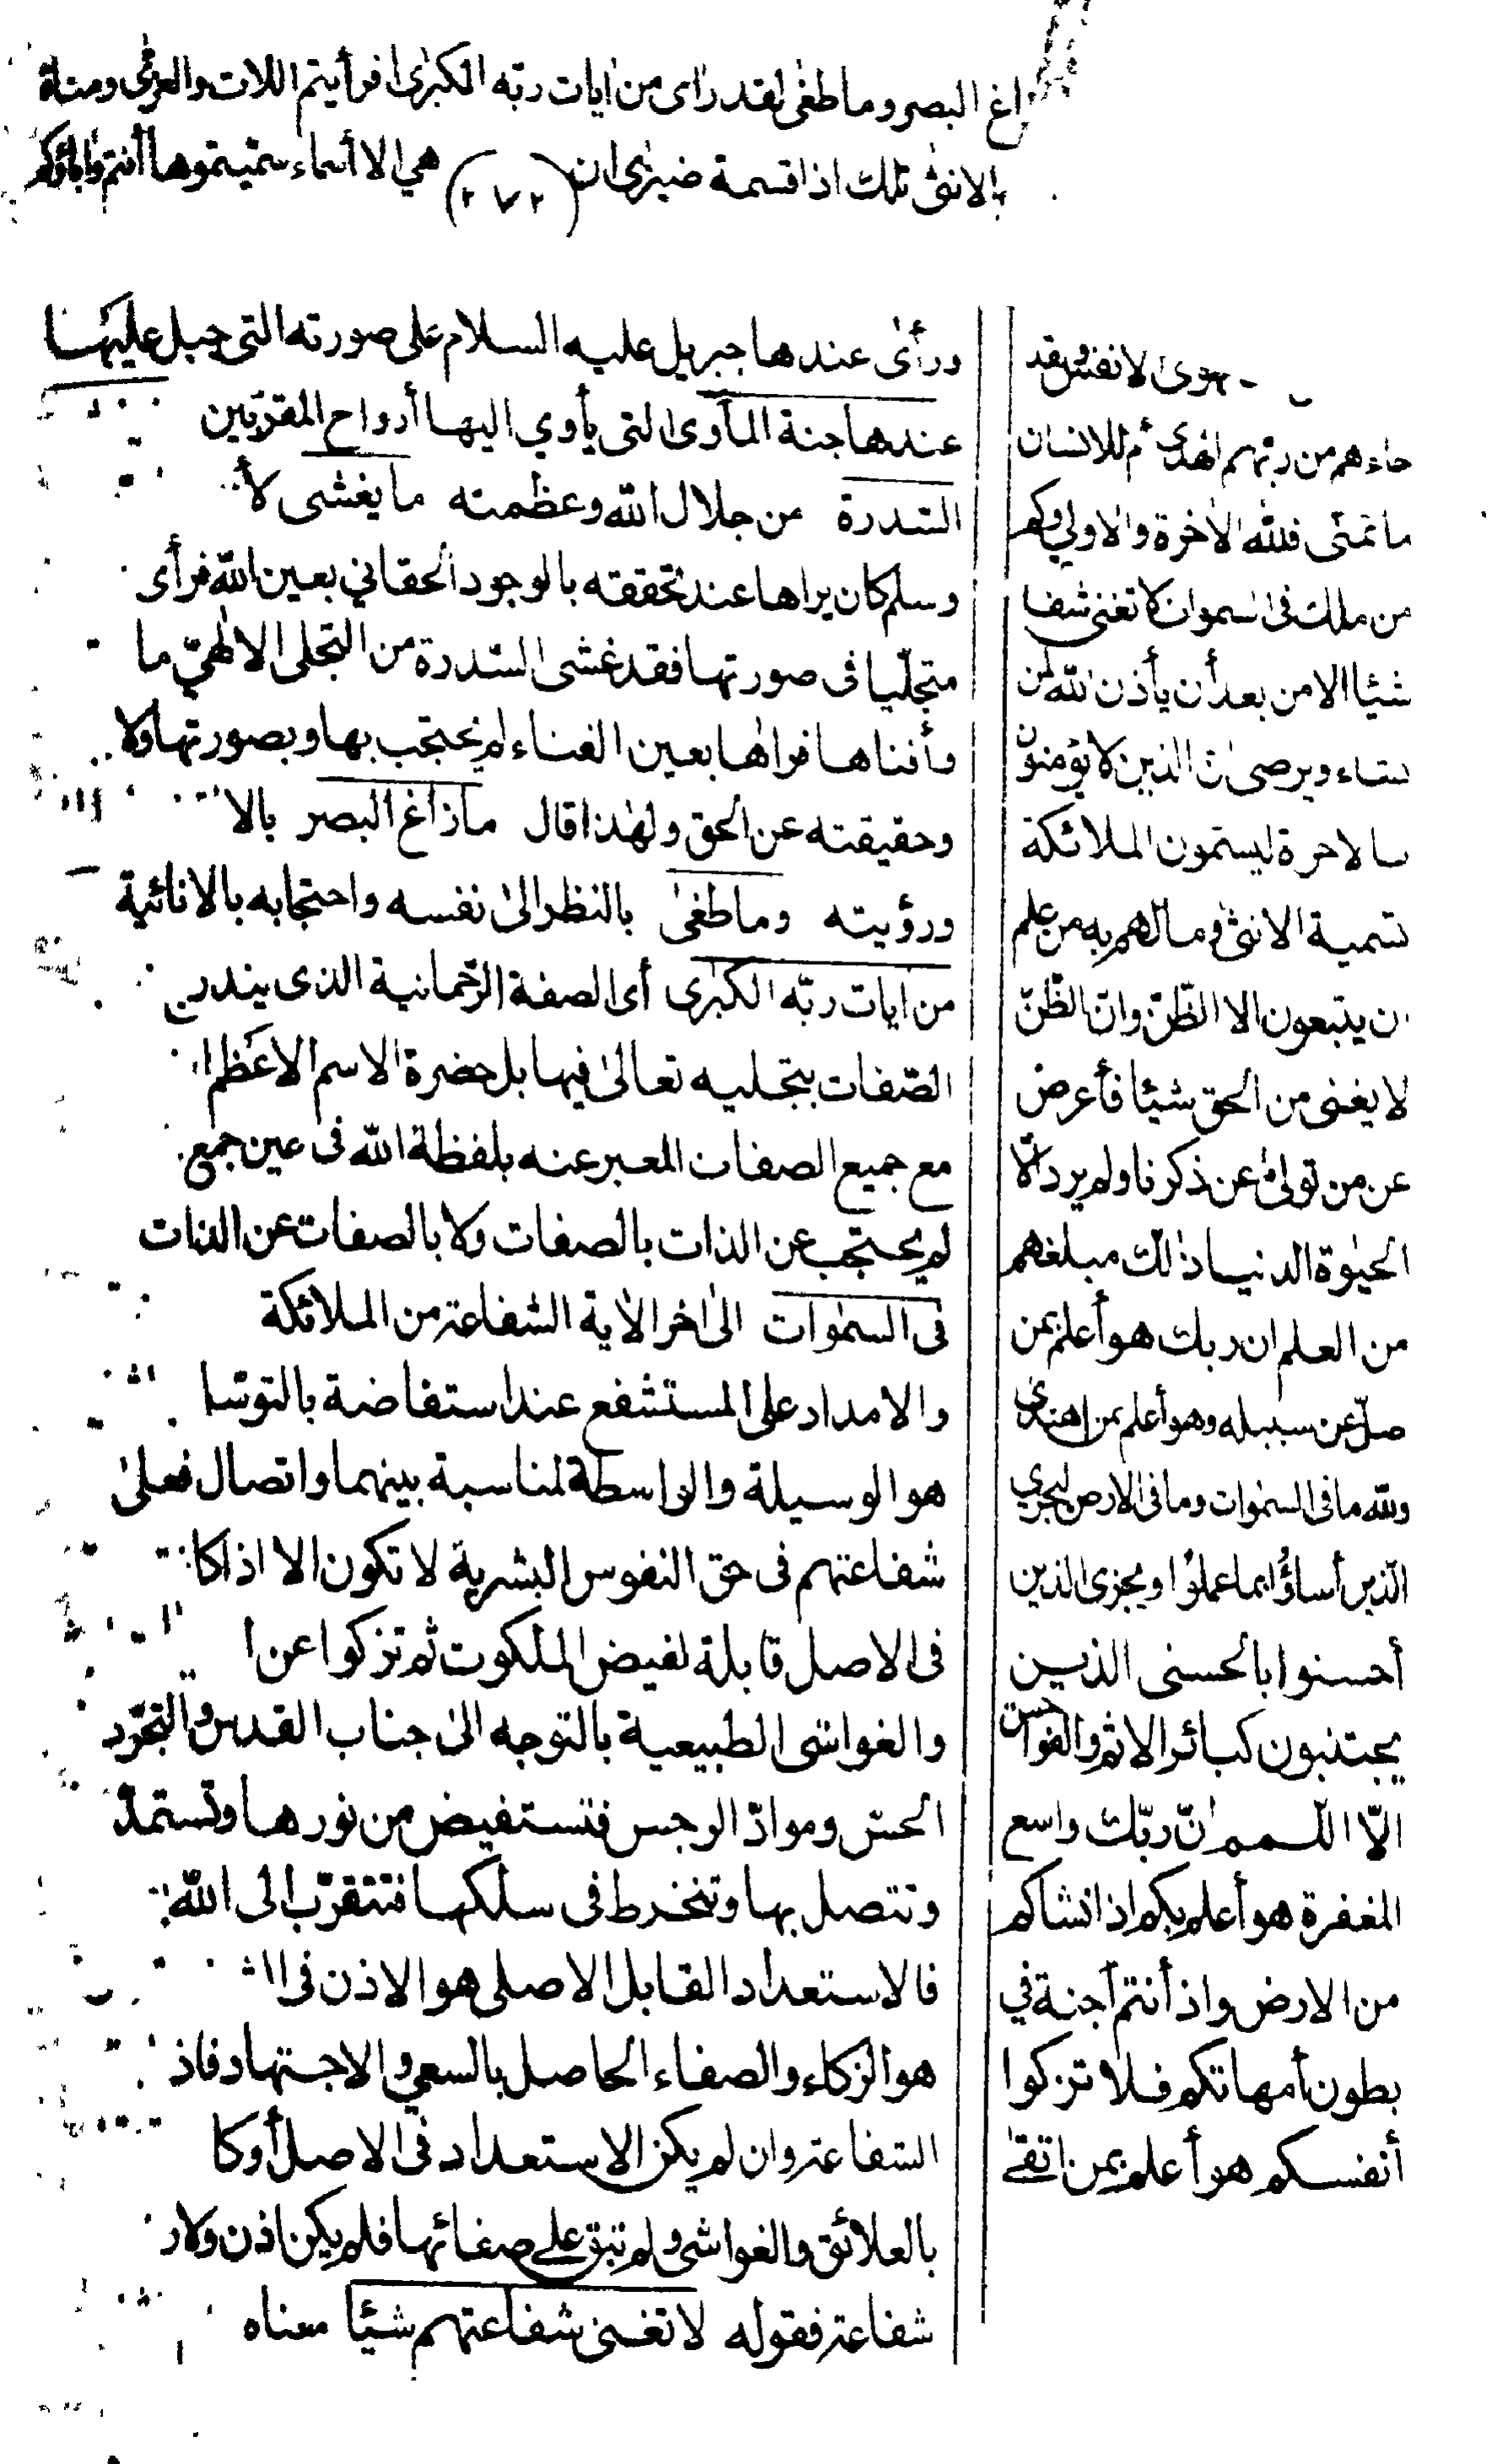 زاغ البصر وما طغى لقد رأى من ايات ربه الكبرى افرأيتم اللات والعزى ومناة
الانثى تلك اذا قسمة ضيزى ان (٢٧٢) هي الا أسماء سميتموها أنتم واباؤكم
تهوى الانفس ولقد
جاءهم من ربهم الهدى أم للانسان
ما تمنى فلله الاخرة والاولى وكم
من ملك فى السموات لا تغنى شفا
شيئا الا من بعد أن يأذن الله لمن
يشاء ويرضى ان الذين لا يؤمنون
بالاخرة ليسمون الملائكة
تسمية الانثى وما لهم به من علم
ان يتبعون الا الظنّ وانّ الظنّ
لا يغنى من الحق شيئا فأعرض
عن من تولى عن ذكرنا ولم يرد الّا
الحيوة الدنيا ذلك مبلغهم
من العلم ان ربك هو أعلم بمن
ضلّ عن سبيله وهو أعلم بمن اهتدى
ولله ما فى السموات وما فى الارض ليجزي
الذين أساؤا بما عملوا ويجزى الذين
أحسنوا بالحسنى الذين
يجتنبون كبائر الاثم والفواحش
الّا اللمم انّ ربّك واسع
المغفرة هو أعلم بكم اذ انشاكم
من الارض واذ أنتم أجنة في
بطون أمهاتكم فلا تزكوا
أنفسكم هو أعلم بمن اتقى
ورأى عندها جبريل عليه السلام على صورته التى جبل عليها
عندها جنة المأوى التى يأوي اليها أرواح المقربين
السّدرة من جلال الله وعظمته ما يغشى لأ
وسلم كان يراها عند تحققه بالوجود الحقاني بعين الله فرأى
متجلّيا فى صورتها فقد غشى السّدرة من التجلى الالهيّ ما
وأفناها فراها بعين الفناء لم يحتجب بها وبصورتها ولا
وحقيقته عن الحق ولهذا قال ما زاغ البصر بالا
ورؤيته وما طغى بالنظر الى نفسه واحتجابه بالانائية
من ايات ربّه الكبرى أى الصفة الرّحمانية الذى يندر
الصّفات بتجليه تعالى فيها بل حضرة الاسم الاعظم
مع جميع الصفات المعبر عنه بلفظة الله فى عين جمع
لم يحتجب عن الذات بالصفات ولا بالصفات عن الذات
فى السموات الى اخر الاية الشفاعة من الملائكة
والامداد على المستشفع عند استفاضة بالتوسا
هو الوسيلة والواسطة لمناسبة بينهما واتصال فعلى
شفاعتهم فى حق النفوس البشرية لا تكون الا اذا كا
فى الاصل قابلة لفيض الملكوت ثم تزكوا عن ا
والغواشى الطبيعية بالتوجه الى جناب القدس والتجرّد
الحسّ وموادّ الرجس فتستفيض من نورها وتستمدّ
وتتصل بها وتنخرط فى سلكها فتتقرّب الى الله
فالاستعداد القابل الاصلى هو الاذن فى الش
هو الزكاء والصفاء الحاصل بالسعي والاجتهاد فاذ
الشفاعة وان لم يكن الاستعداد فى الاصل أو كا
بالعلائق والغواشى ولم تبق على صفائها فلم يكن اذن ولا ر
شفاعة فقوله لا تغنى شفاعتهم شيئا معناه